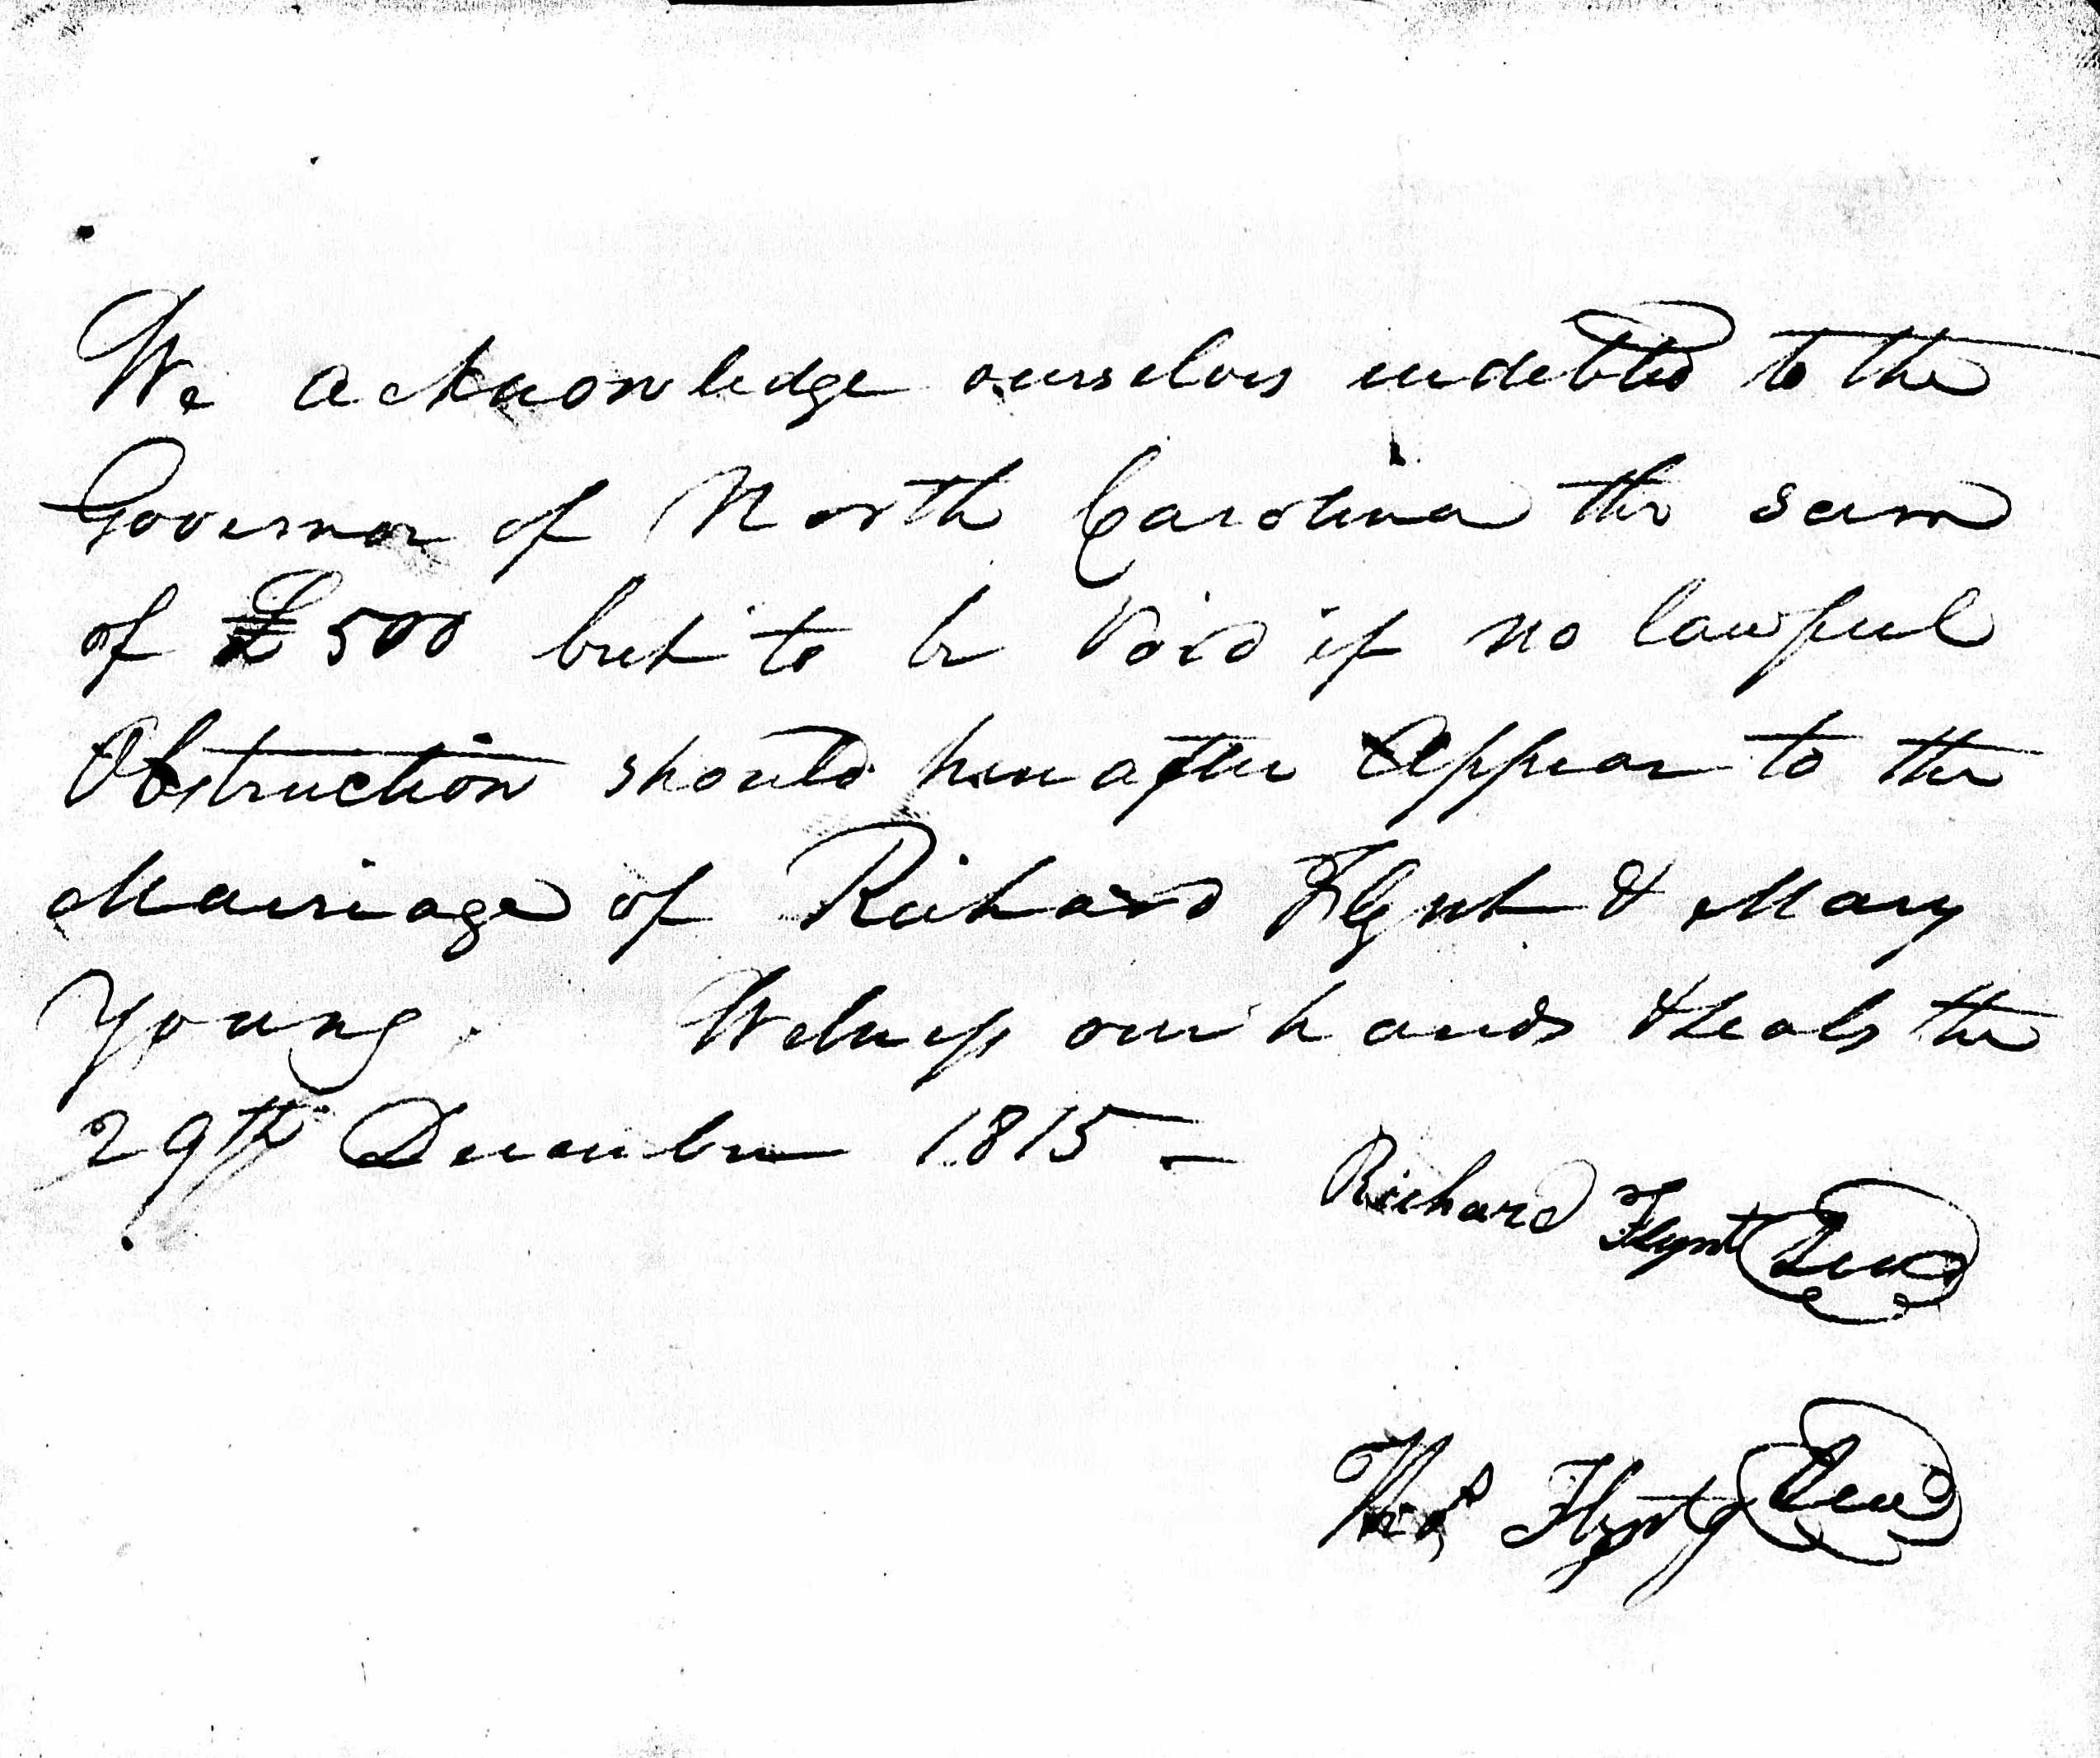 We acknowledge ourselves indebted to the
Governor of North Carolina the sum
of £500 but to be Void if no lawful
Obstruction should hereafter Appear to the
Marriage of Richard Flynt & Mary
Young. Witness our hands & seals the
29th December 1815 —
Richard Flynt Seal
Thos Flynt Seal